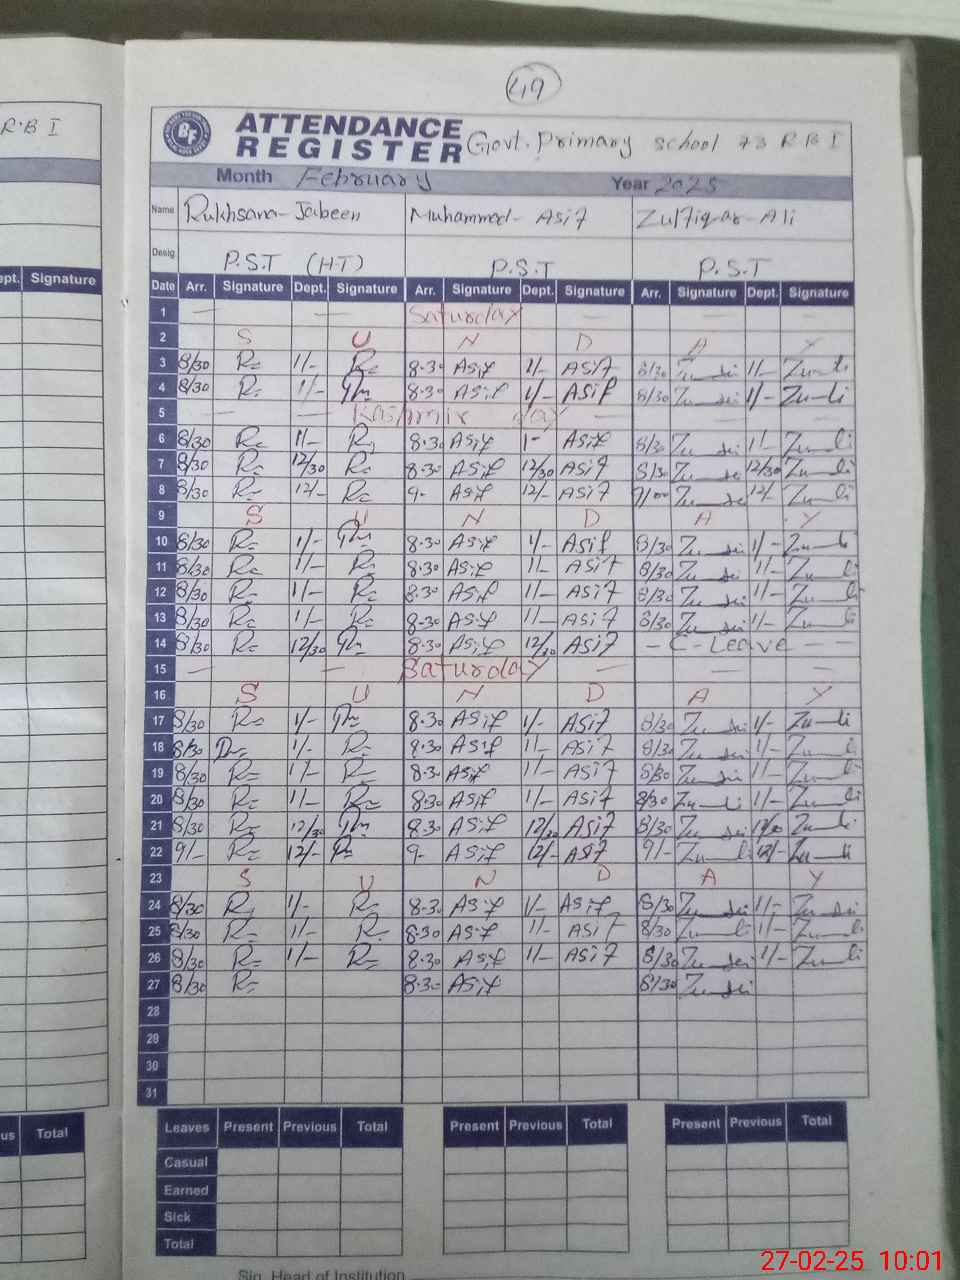 49
R.B I
ATTENDANCE
REGISTER Govt. Primary school 73 R B I
Month February Year 2025
Name Rukhsana-Jabeen Muhammed-Asif Zulfiqar-Ali
Desig P.S.T (H.T) P.S.T P.S.T
ept. Signature
Date Arr. Signature Dept. Signature Arr. Signature Dept. Signature Arr. Signature Dept. Signature
1 — — Saturday — — —
2 S U N D A Y
3 8/30 1/- 8.30 Asif 1/- Asif 8/30 1/-
4 8/30 1/- 8.30 Asif 1/- Asif 8/30 1/-
5 — — Kashmir day — — —
6 8/30 1/- 8.30 Asif 1- Asif 8/30 1/-
7 8/30 12/30 8.30 Asif 12/30 Asif 8/30 12/30
8 8/30 12/- 9- Asif 12/- Asif 9/00 12/-
9 S U N D A Y
10 8/30 1/- 8.30 Asif 1/- Asif 8/30 1/-
11 8/30 1/- 8.30 Asif 1/- Asif 8/30 1/-
12 8/30 1/- 8.30 Asif 1/- Asif 8/30 1/-
13 8/30 1/- 8.30 Asif 1/- Asif 8/30 1/-
14 8/30 12/30 8.30 Asif 12/30 Asif — C-Leave — —
15 — — Saturday — — —
16 S U N D A Y
17 8/30 1/- 8.30 Asif 1/- Asif 8/30 1/-
18 8/30 1/- 8.30 Asif 1/- Asif 8/30 1/-
19 8/30 1/- 8.30 Asif 1/- Asif 8/30 1/-
20 8/30 1/- 8.30 Asif 1/- Asif 8/30 1/-
21 8/30 12/30 8.30 Asif 12/30 Asif 8/30 12/30
22 9/- 12/- 9- Asif 12/- Asif 9/- 12/-
23 S U N D A Y
24 8/30 1/- 8.30 Asif 1/- Asif 8/30 1/-
25 8/30 1/- 8.30 Asif 1/- Asif 8/30 1/-
26 8/30 1/- 8.30 Asif 1/- Asif 8/30 1/-
27 8/30 8.30 Asif 8/30
28
29
30
31
us Total
Leaves Present Previous Total Present Previous Total Present Previous Total
Casual
Earned
Sick
Total
Sig. Head of Institution
27-02-25 10:01